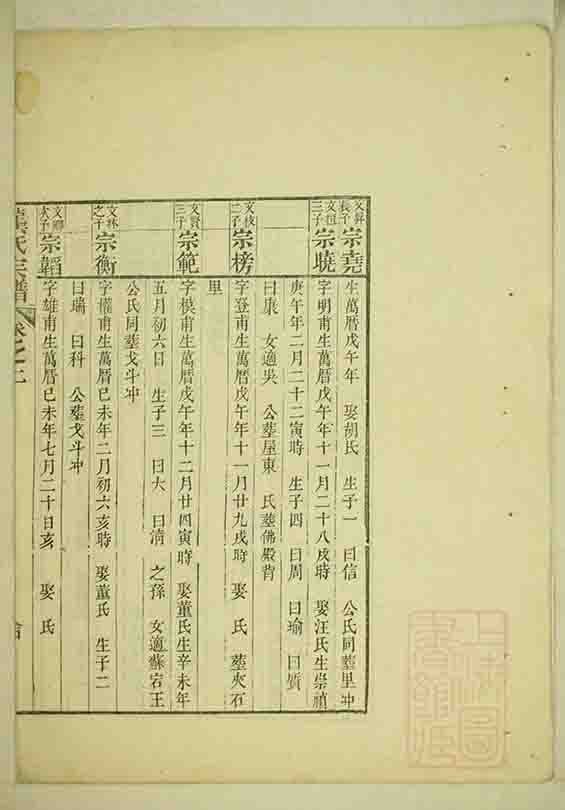 文昇長子宗堯
生萬曆戊午年 娶胡氏 生子一 曰信 公氏同塟里冲
三子宗曉
字明甫生萬曆戊午年十一月二十八戌時 娶汪氏生崇禎
庚午年二月二十二寅時 生子四 曰周 曰瑜 曰質
曰康 女適吳 公塟屋東 氏塟佛殿背
二子宗榜
字登甫生萬曆戊午年十一月廿九戌時 娶 氏 塟夾石
里
文賢三子宗範
字模甫生萬曆戊午年十二月廿四寅時 娶董氏生辛未年
五月初六日 生子三 曰大 曰清 之孫 女適蘇宕王
公氏同塟戈斗冲
文林之子宗衡
字權甫生萬曆已未年二月初六亥時 娶葉氏 生子二
曰瑞 曰科 公塟戈斗冲
次子宗韜
字雄甫生萬曆已未年七月二十日亥 娶 氏
氏宗譜 卷之二